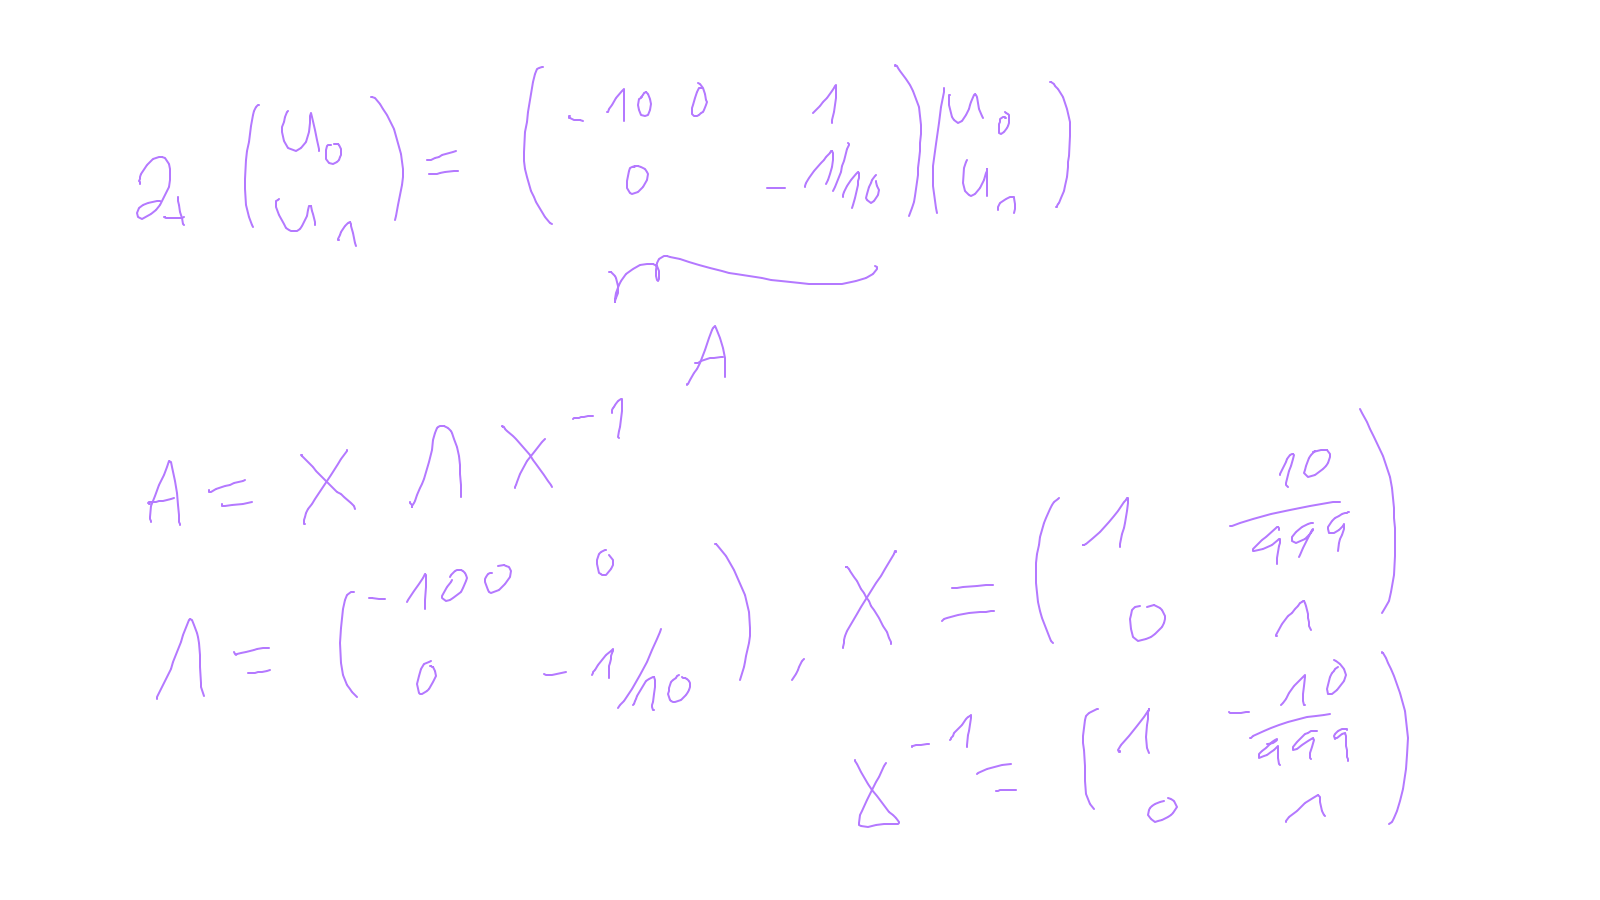 ∂_t (u_0 u_1) = (-100 1 0 -1/10) (u_0 u_1)
A
A = X Λ X^{-1}
Λ = (-100 0 0 -1/10), X = (1 10/999 0 1)
X^{-1} = (1 -10/999 0 1)